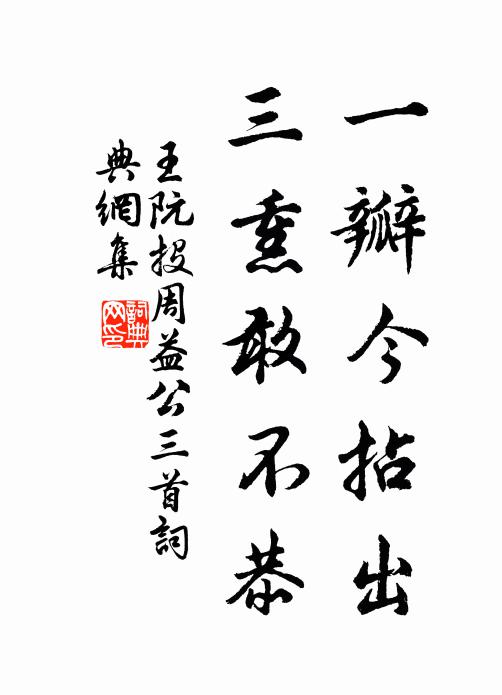 一瓣今拈出
三熏敢不恭
王阮投周益公三首詞
典網集
詞典網印